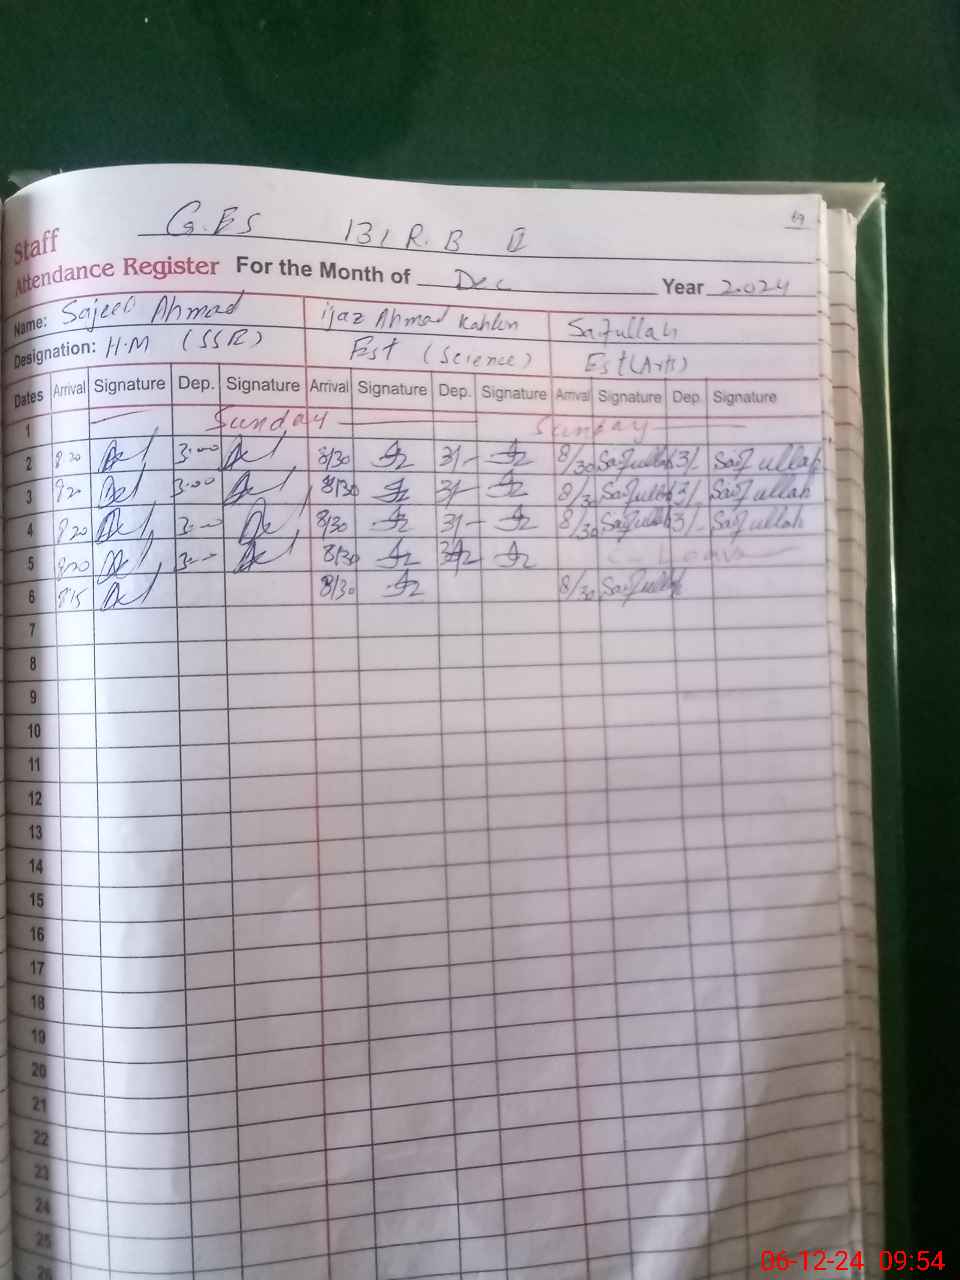 69
G.ES 131 R.B II
Staff
Attendance Register For the Month of Dec Year 2024
Name: Sajeed Ahmad ijaz Ahmad Kahlon Saifullah
Designation: H.M (SSR) Est (Science) Est (Arts)
Dates Arrival Signature Dep. Signature Arrival Signature Dep. Signature Arrival Signature Dep. Signature
1 Sunday Sunday
2 8 20 3:00 8/30 3/- 8/30 Saifullah 3/ Saifullah
3 820 3:00 8/30 3/- 8/30 Saifullah 3/ Saifullah
4 820 3:00 8/30 3/- 8/30 Saifullah 3/- Saifullah
5 8:20 3:00 8/30 C-Leave
6 8:15 8/30 8/30 Saifullah
7
8
9
10
11
12
13
14
15
16
17
18
19
20
21
22
23
24
25
26
06-12-24 09:54